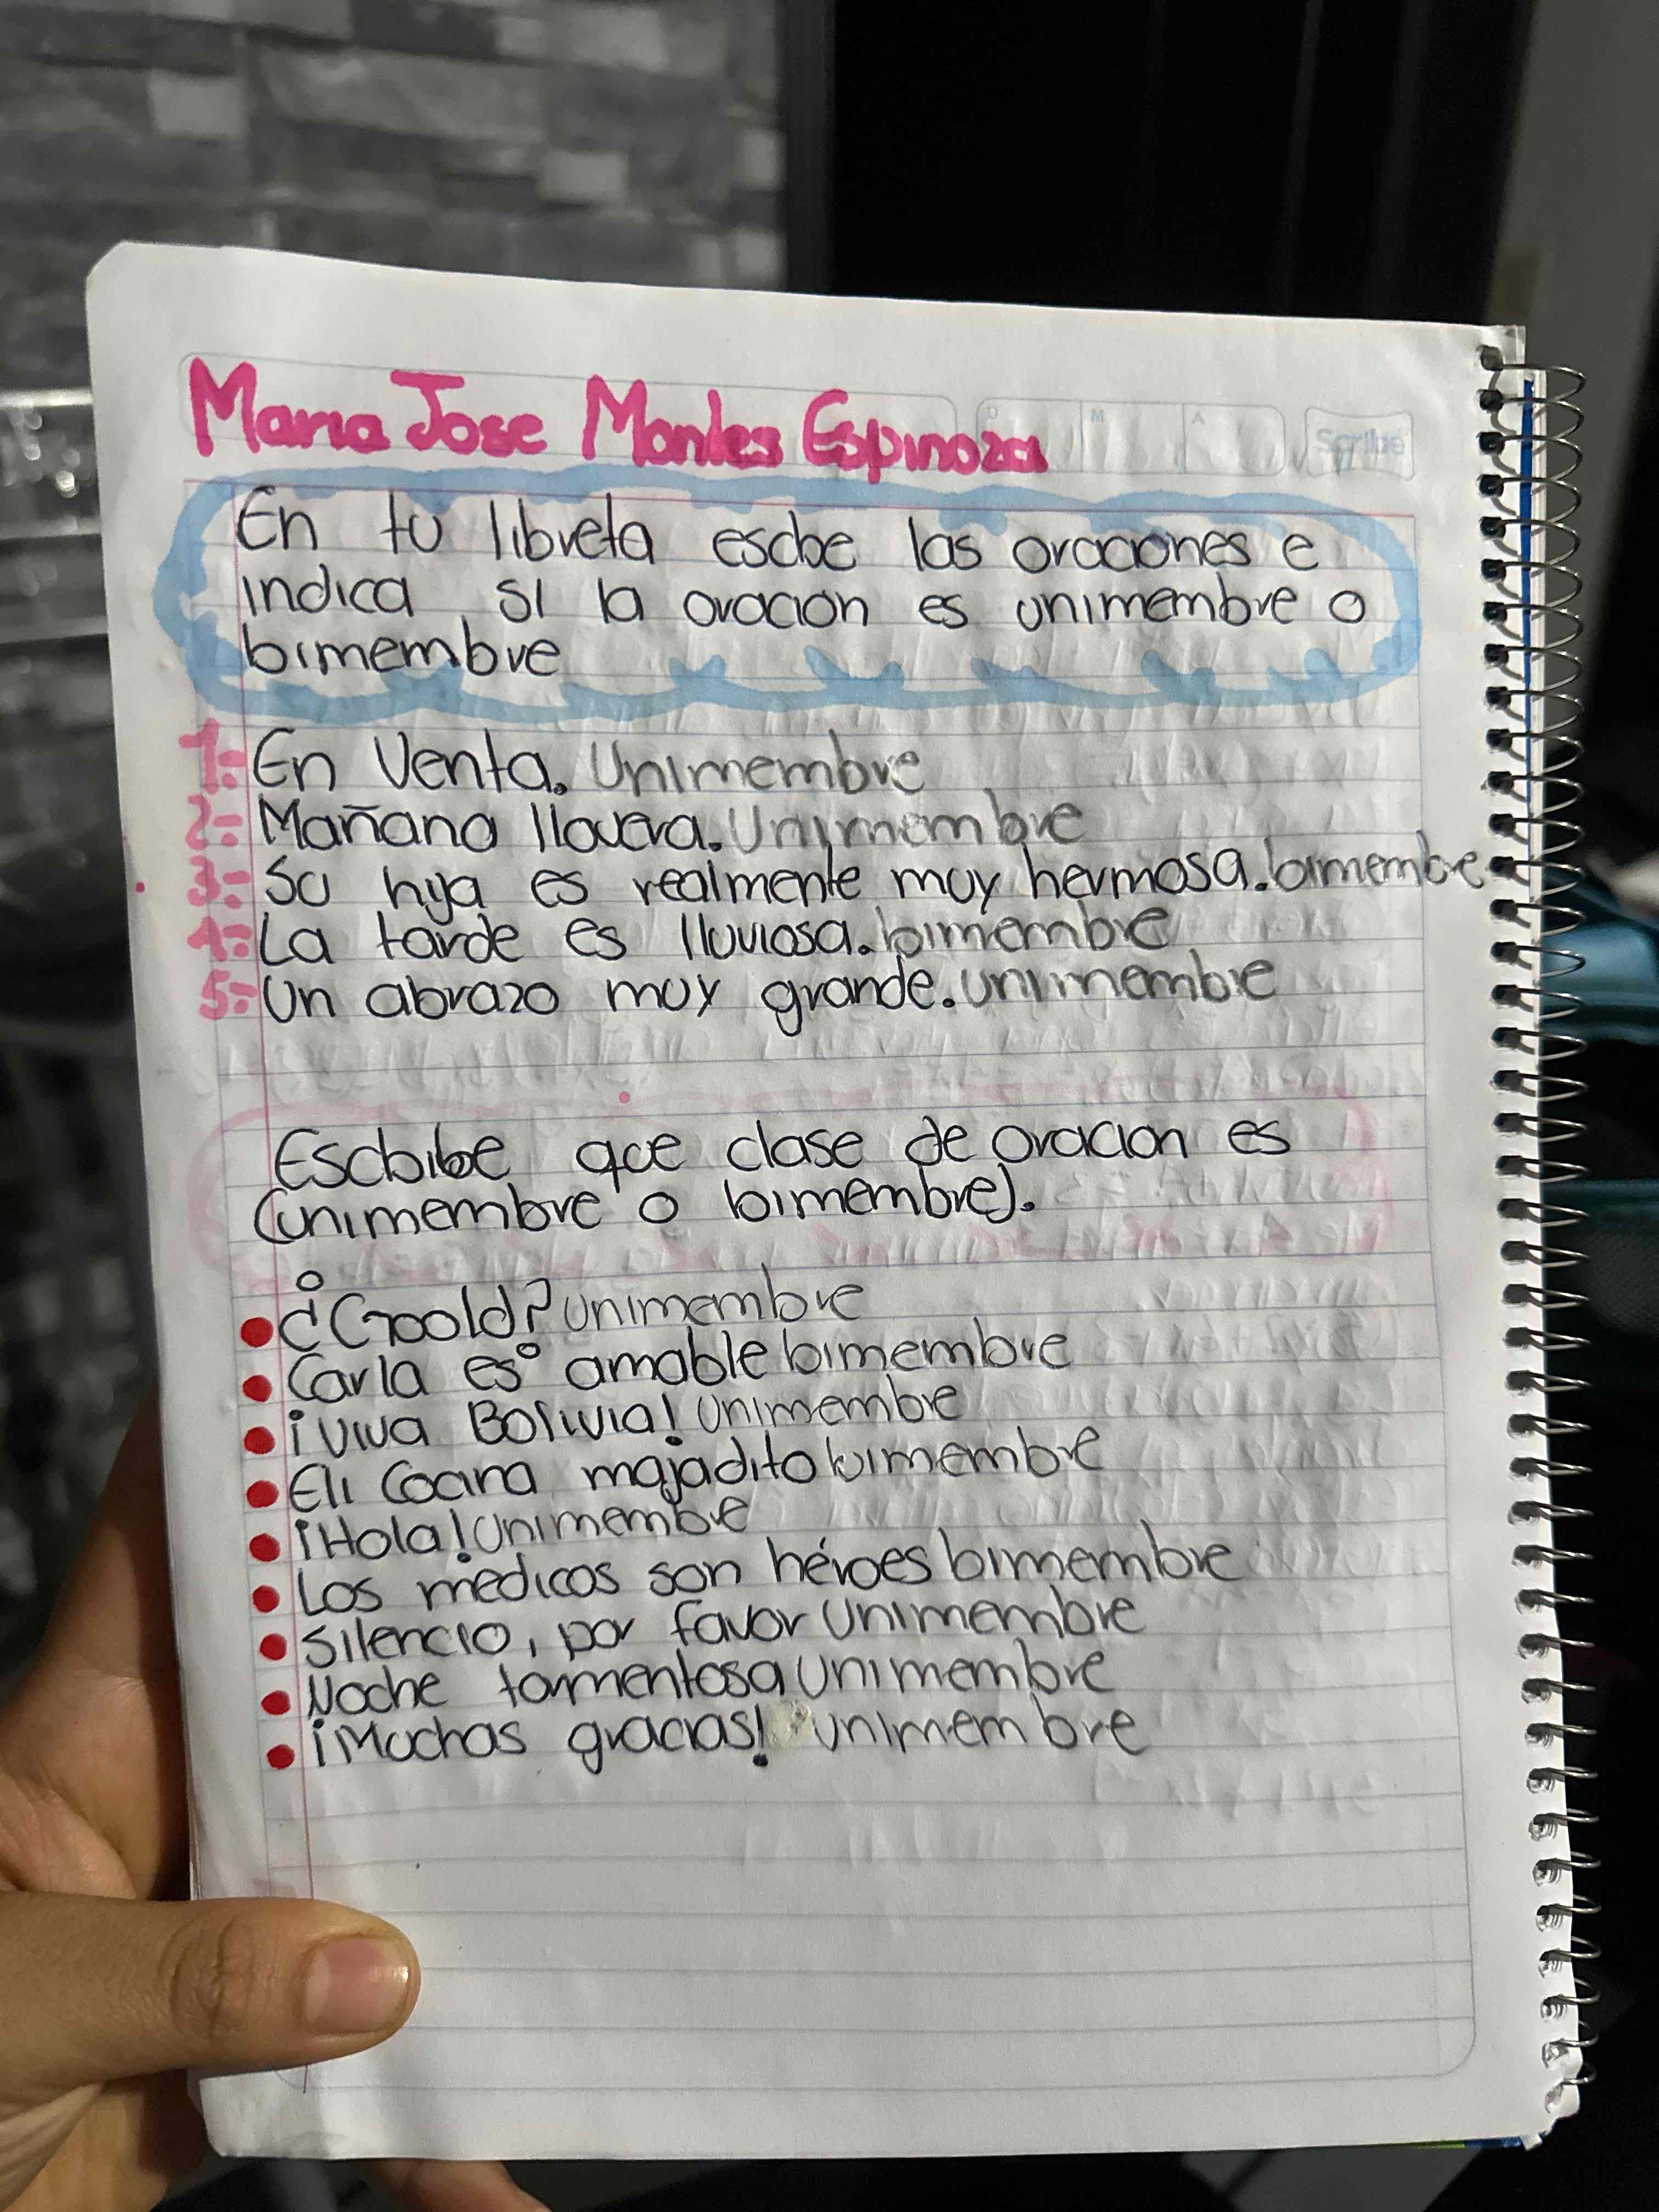 Maria Jose Monles Espinoza
D M A Scribe
En tu libreta escbe las oraciones e
indica si la oracion es unimembre o
bimembre
1:- En Venta. Unimembre
2:- Mañana llovera. Unimembre
3:- Su hija es realmente muy hermosa. bimembre
4:- La tarde es lluviosa. bimembre
5:- Un abrazo muy grande. unimembre
Escbibe que clase de oracion es
(unimembre o bimembre).
• ¿Goold? unimembre
• Carla es amable bimembre
• ¡Viva Bolivia! Unimembre
• Eli Cocina majadito bimembre
• ¡Hola! Unimembre
• Los médicos son héroes bimembre
• Silencio, por favor Unimembre
• Noche tormentosa Unimembre
• ¡Muchas gracias! unimembre